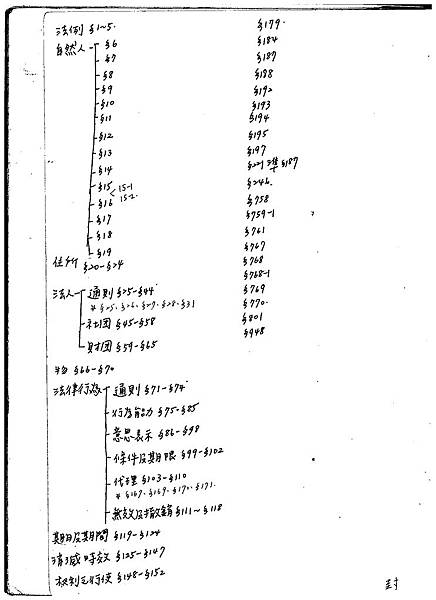 法例 §1~5.
自然人 §6
§7
§8
§9
§10
§11
§12
§13
§14
§15 15-1
§16 15-2.
§17
§18
§19
住所 §20-§24
法人 通則 §25-§44
* §25、§26、§27、§28、§31
社団 §45-§58
財団 §59-§65
物 §66-§70
法律行為 通則 §71-§74
行為能力 §75-§85
意思表示 §86-§98
條件及其期限 §99-§102
代理 §103-§110
* §167、§169、§170、§171.
無效及撤銷 §111~§118
期日及其期間 §119-§124
消滅時效 §125-§147
权利之行使 §148-§152
§179.
§184
§187
§188
§192
§193
§194
§195
§197
§221 準 §187
§246.
§758
§759-1
§761
§767
§768
§768-1
§769
§770.
§801
§948
封